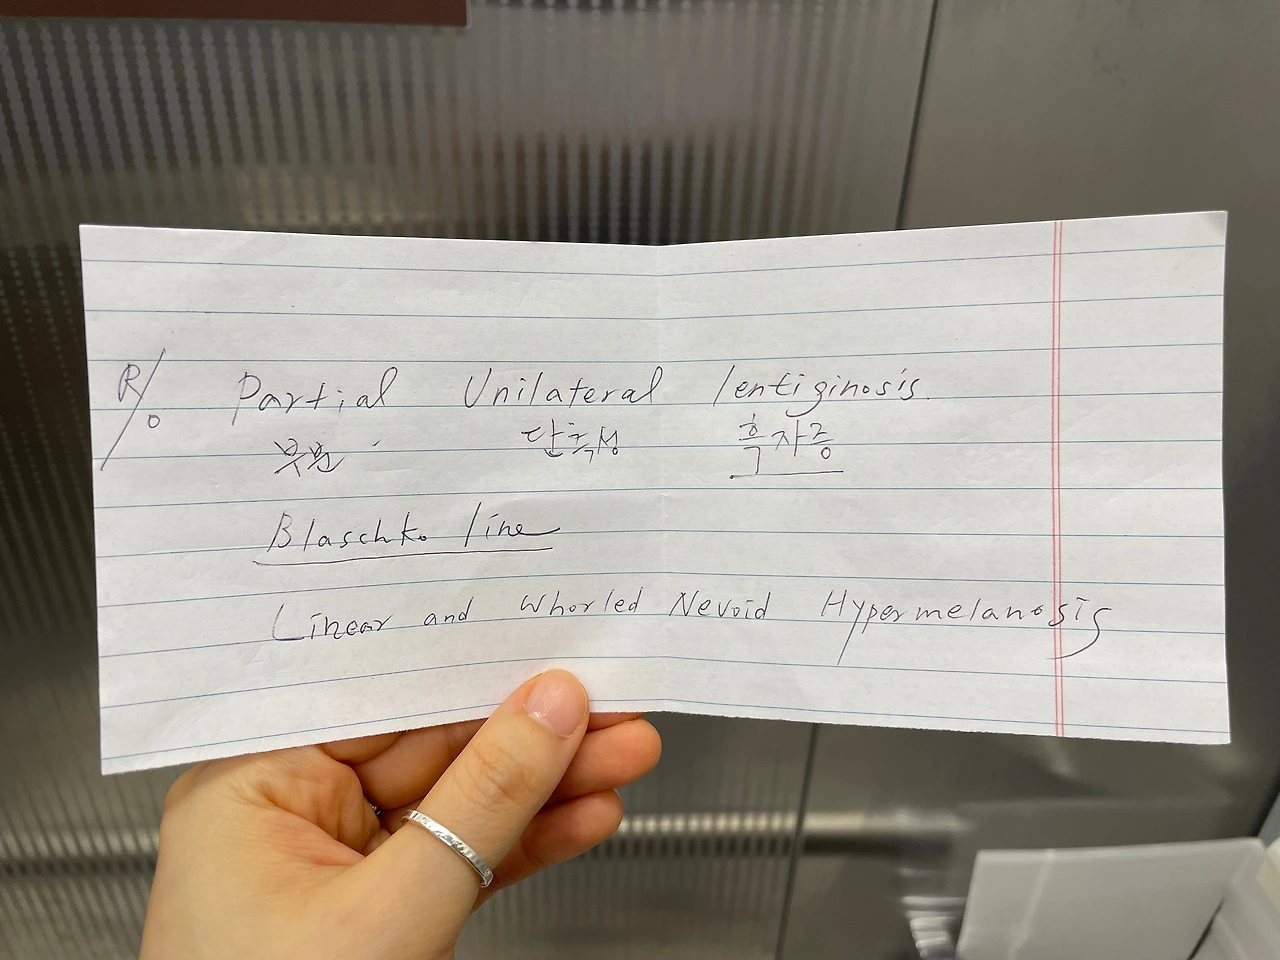 R/o Partial Unilateral lentiginosis.
단측성 흑자증
Blaschko line
Linear and Whorled Nevoid Hypermelanosis